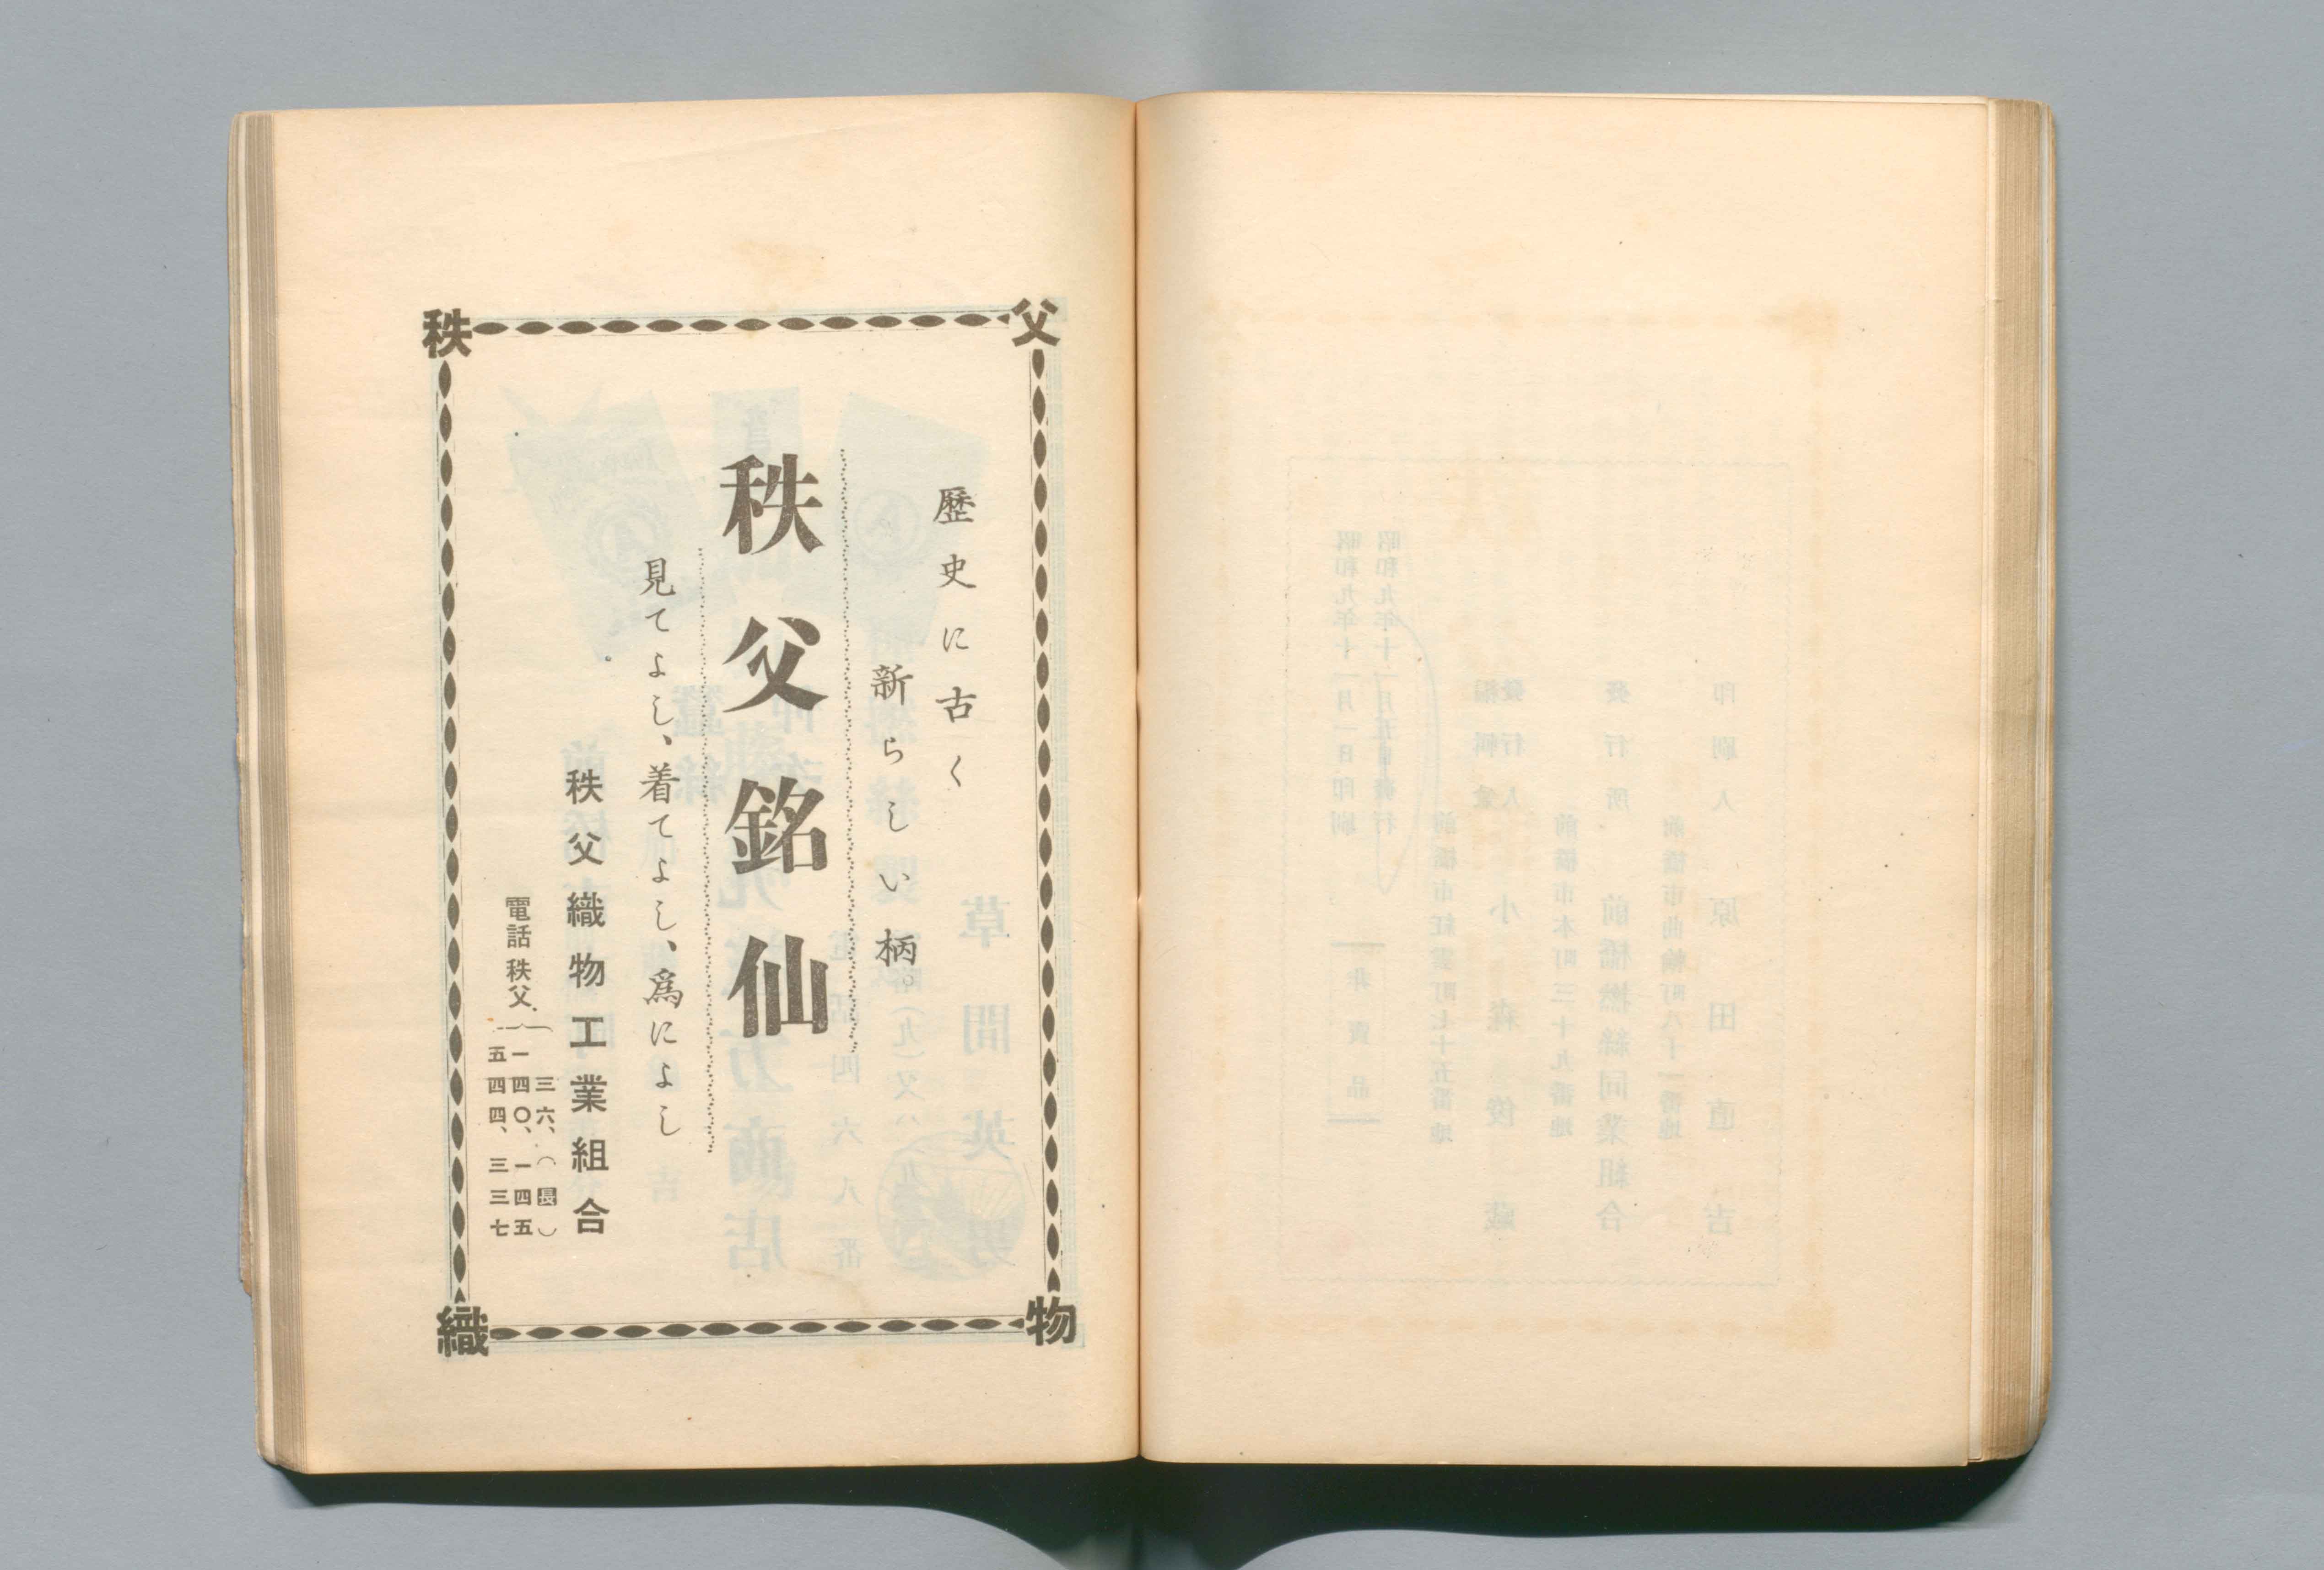 秩父
織物
歷史に古く
新らしい柄。
秩父銘仙
見てよし、着てよし、爲によし
秩父織物工業組合
電話 秩父
三六、(長)
一四〇、一四五
五四四、三三七